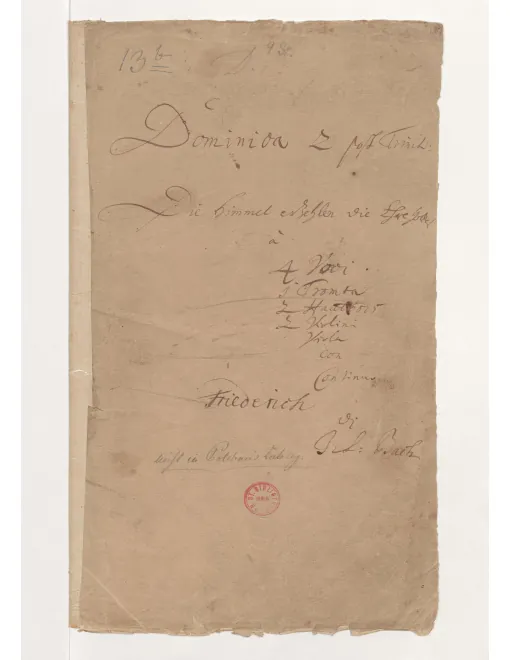 13 b
Dominica 2 post Trinit:
Die Himmel erzehlen die Ehre
à
4 Voci.
1 Tromba
2 Hautbois
2 Violini
Viola
con
Continuo
Friederich
di
J. S. Bach